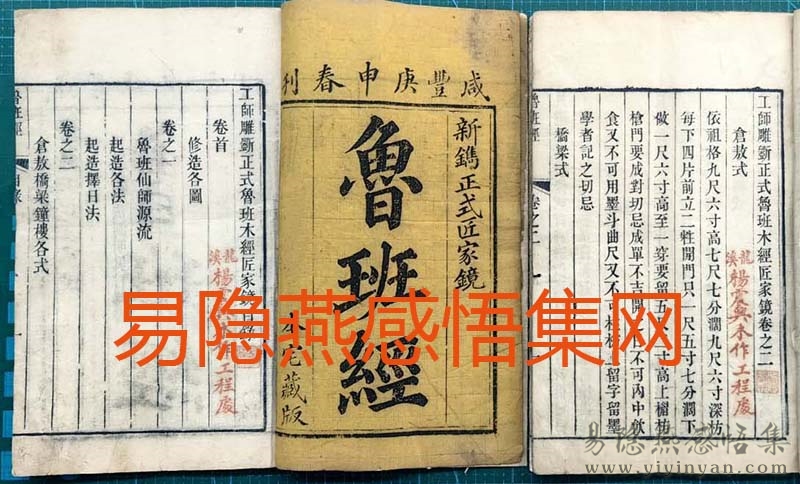 工師雕斵正式魯班木經匠家鏡目錄
卷首
修造各圖
卷之一
魯班仙師源流
起造各法
起造擇日法
卷之二
倉敖橋梁鐘樓各式
龍溪
魯班經
目錄
一
咸豐庚申春利
新鐫正式匠家鏡
魯班經
本宅藏版
工師雕斵正式魯班木經匠家鏡卷之二
倉敖式
依祖格九尺六寸高七尺七分濶九尺六寸深枋
每下四片前立二牲開門只一尺五寸七分濶下
做一尺六寸高至一穿要留五尺
寸高上楣枋
槍門要成對切忌成單不吉開
不可內中飲
食又不可用墨斗曲尺又不可
留字留墨
學者記之切忌
橋梁式
龍溪
木作工程處
魯班經
卷之二
易隐燕感悟集网
易隐燕感悟集
www.yiyinyan.com